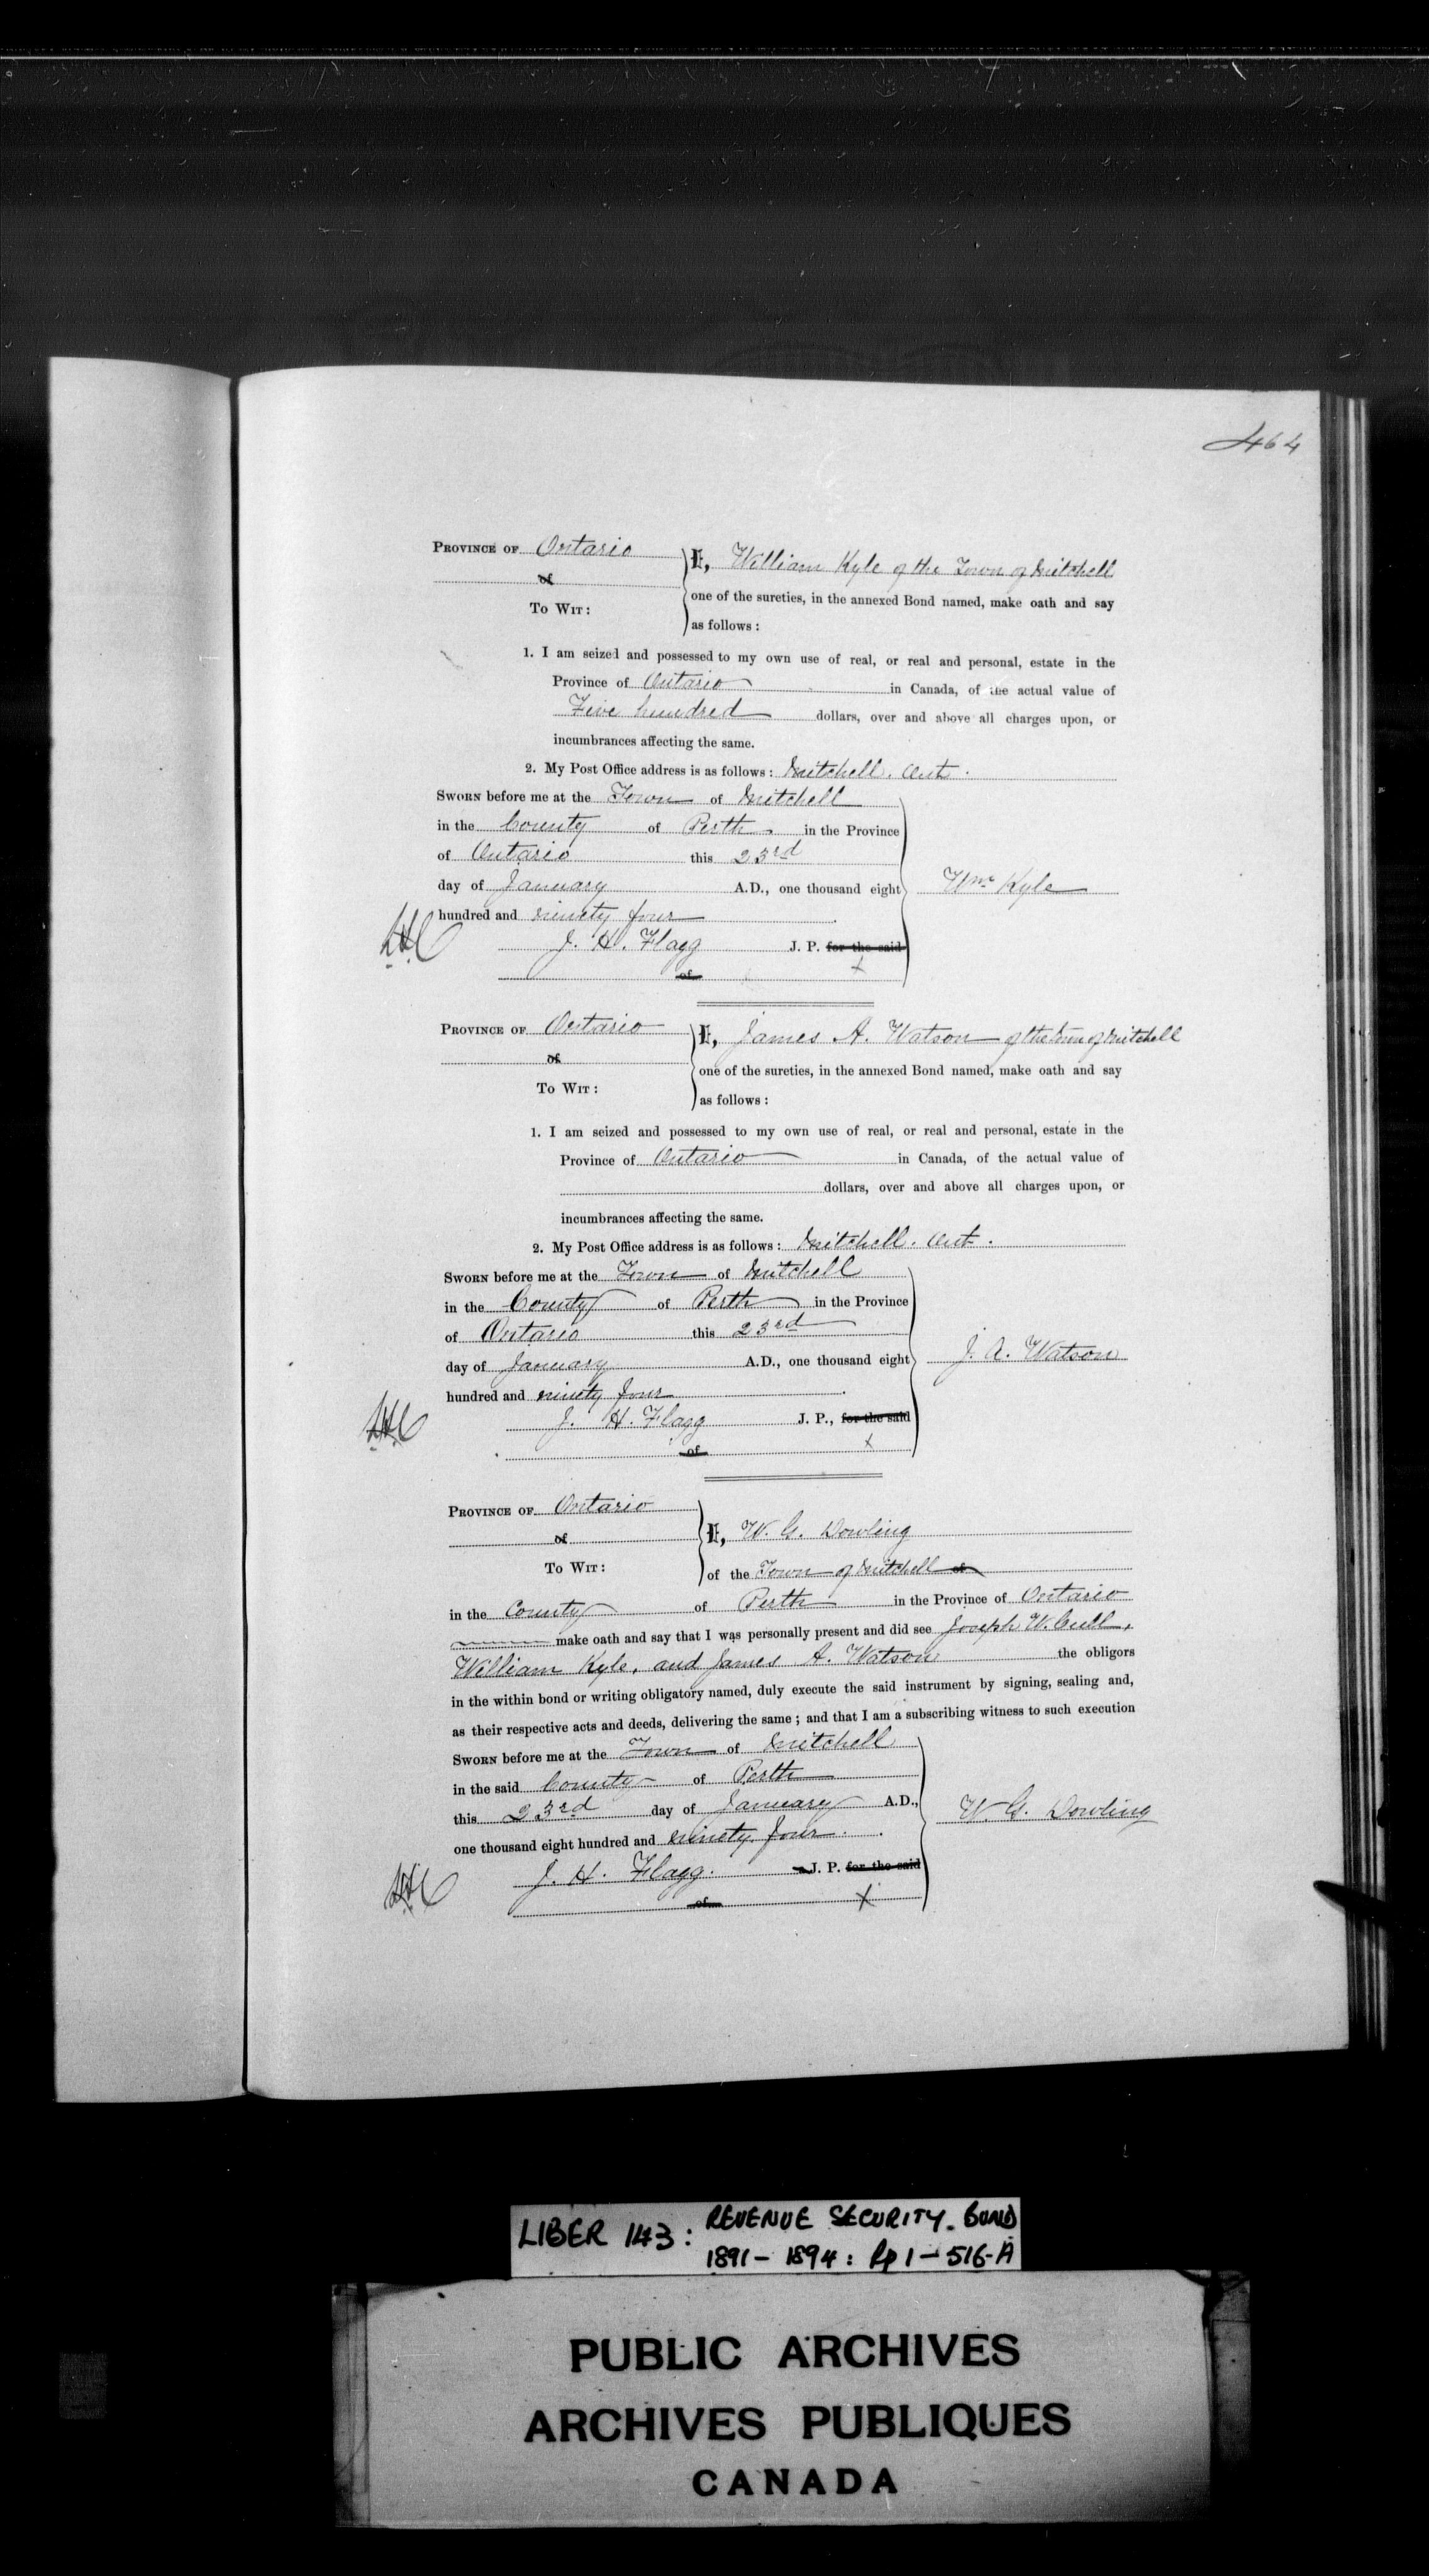 464
PROVINCE OF Ontario
of
TO WIT:
I, William Kyle of the Town of Mitchell
one of the sureties, in the annexed Bond named, make oath and say
as follows:
1. I am seized and possessed to my own use of real, or real and personal, estate in the
Province of Ontario in Canada, of the actual value of
Five hundred dollars, over and above all charges upon, or
incumbrances affecting the same.
2. My Post Office address is as follows: Mitchell. Ont.
SWORN before me at the Town of Mitchell
in the County of Perth in the Province
of Ontario this 23rd
day of January A.D., one thousand eight
hundred and ninety four
Wm Kyle
J. H. Flagg J. P. for the said
of X
PROVINCE OF Ontario
of
TO WIT:
I, James A. Watson of the Town of Mitchell
one of the sureties, in the annexed Bond named, make oath and say
as follows:
1. I am seized and possessed to my own use of real, or real and personal, estate in the
Province of Ontario in Canada, of the actual value of
dollars, over and above all charges upon, or
incumbrances affecting the same.
2. My Post Office address is as follows: Mitchell. Ont.
SWORN before me at the Town of Mitchell
in the County of Perth in the Province
of Ontario this 23rd
day of January A.D., one thousand eight
hundred and ninety four
J. A. Watson
J. H. Flagg J. P., for the said
of X
PROVINCE OF Ontario
of
TO WIT:
I, W. G. Dowling
of the Town of Mitchell
in the County of Perth in the Province of Ontario
make oath and say that I was personally present and did see Joseph W. Cull,
William Kyle, and James A. Watson the obligors
in the within bond or writing obligatory named, duly execute the said instrument by signing, sealing and,
as their respective acts and deeds, delivering the same; and that I am a subscribing witness to such execution
SWORN before me at the Town of Mitchell
in the said County of Perth
this 23rd day of January A.D.,
one thousand eight hundred and ninety four.
W. G. Dowling
J. H. Flagg. J. P. for the said
of X
LIBER 143: REVENUE SECURITY. BOND
1891-1894: Pp 1-516-A
PUBLIC ARCHIVES
ARCHIVES PUBLIQUES
CANADA